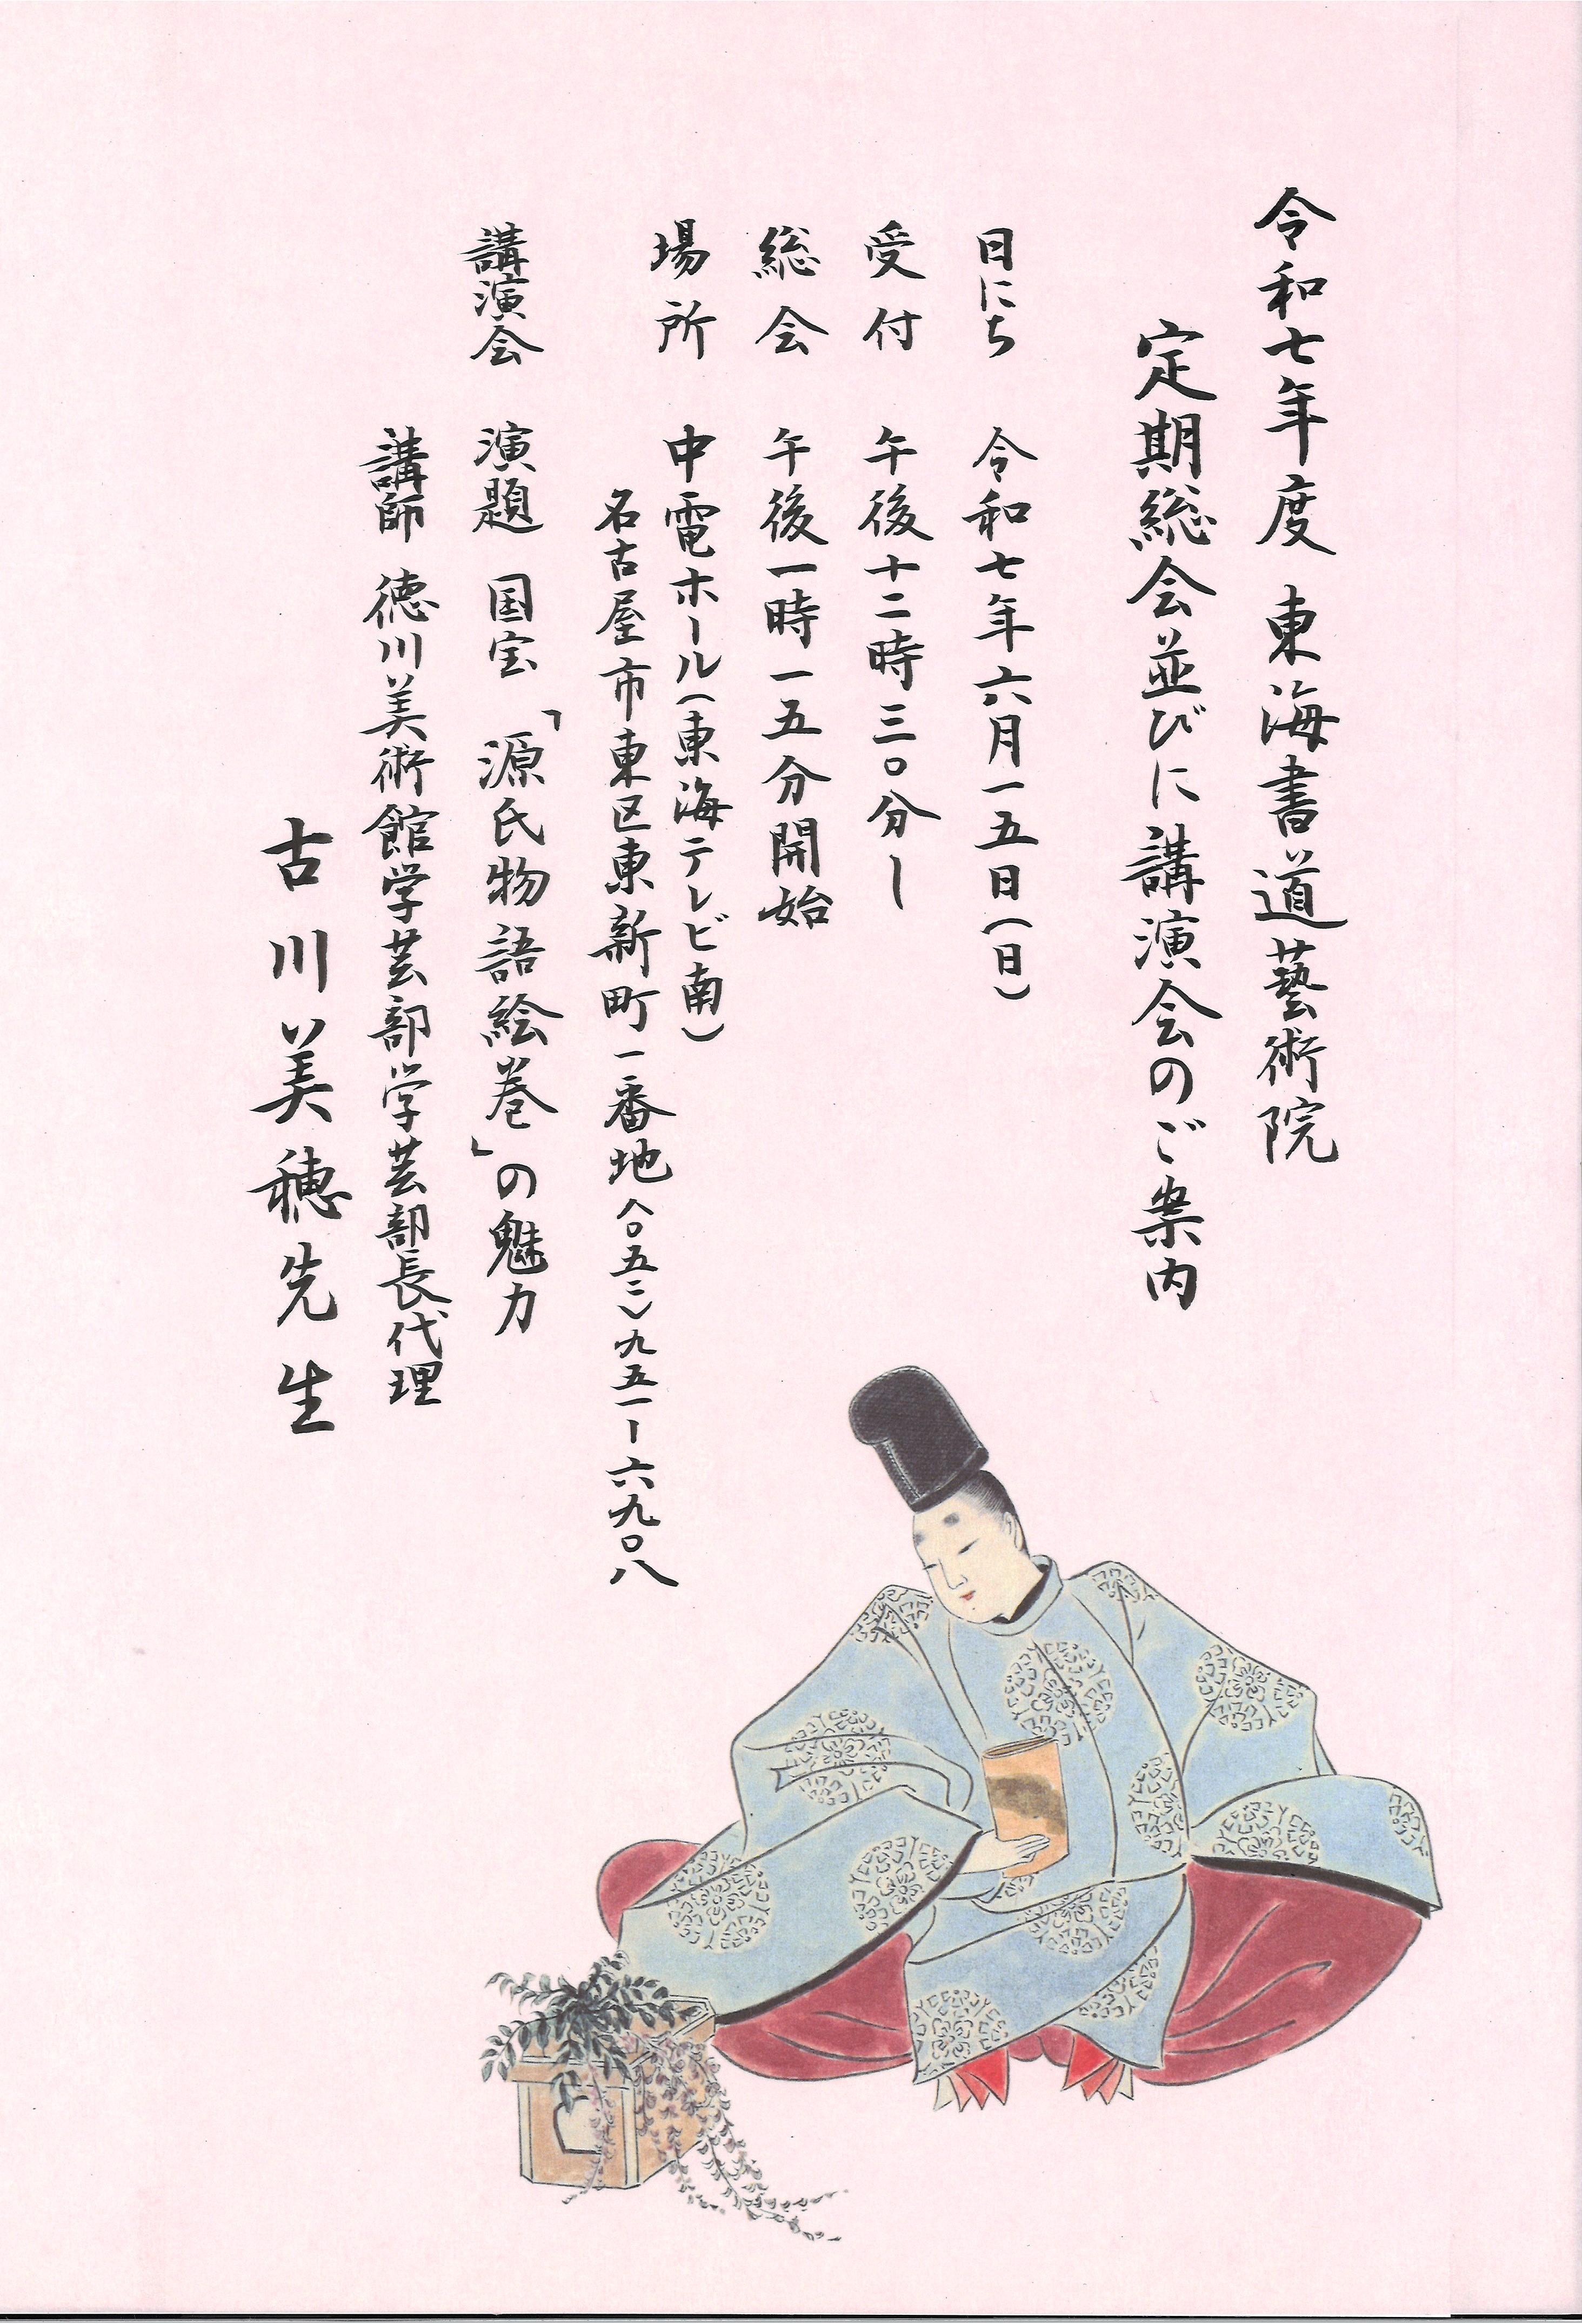 令和七年度 東海書道藝術院
定期総会並びに講演会のご案内
日にち 令和七年六月一五日(日)
受付 午後十二時三〇分〜
総会 午後一時一五分開始
場所 中電ホール(東海テレビ南)
名古屋市東区東新町一番地(〇五二)九五一ー六九〇八
講演会 演題 国宝「源氏物語絵巻」の魅力
講師 徳川美術館学芸部学芸部長代理
古川美穂先生